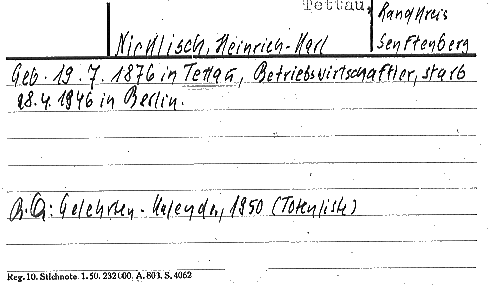 Tettau, Landkreis
Nicklisch, Heinrich-Karl Senftenberg
Geb. 19.7.1876 in Tettau, Betriebswirtschaftler, starb
28.4.1946 in Berlin.
B.Q: Gelehrten-Kalender, 1950 (Totenliste)
Reg. 10. Stichnote. 1. 50. 232000. A. 803. S. 4062